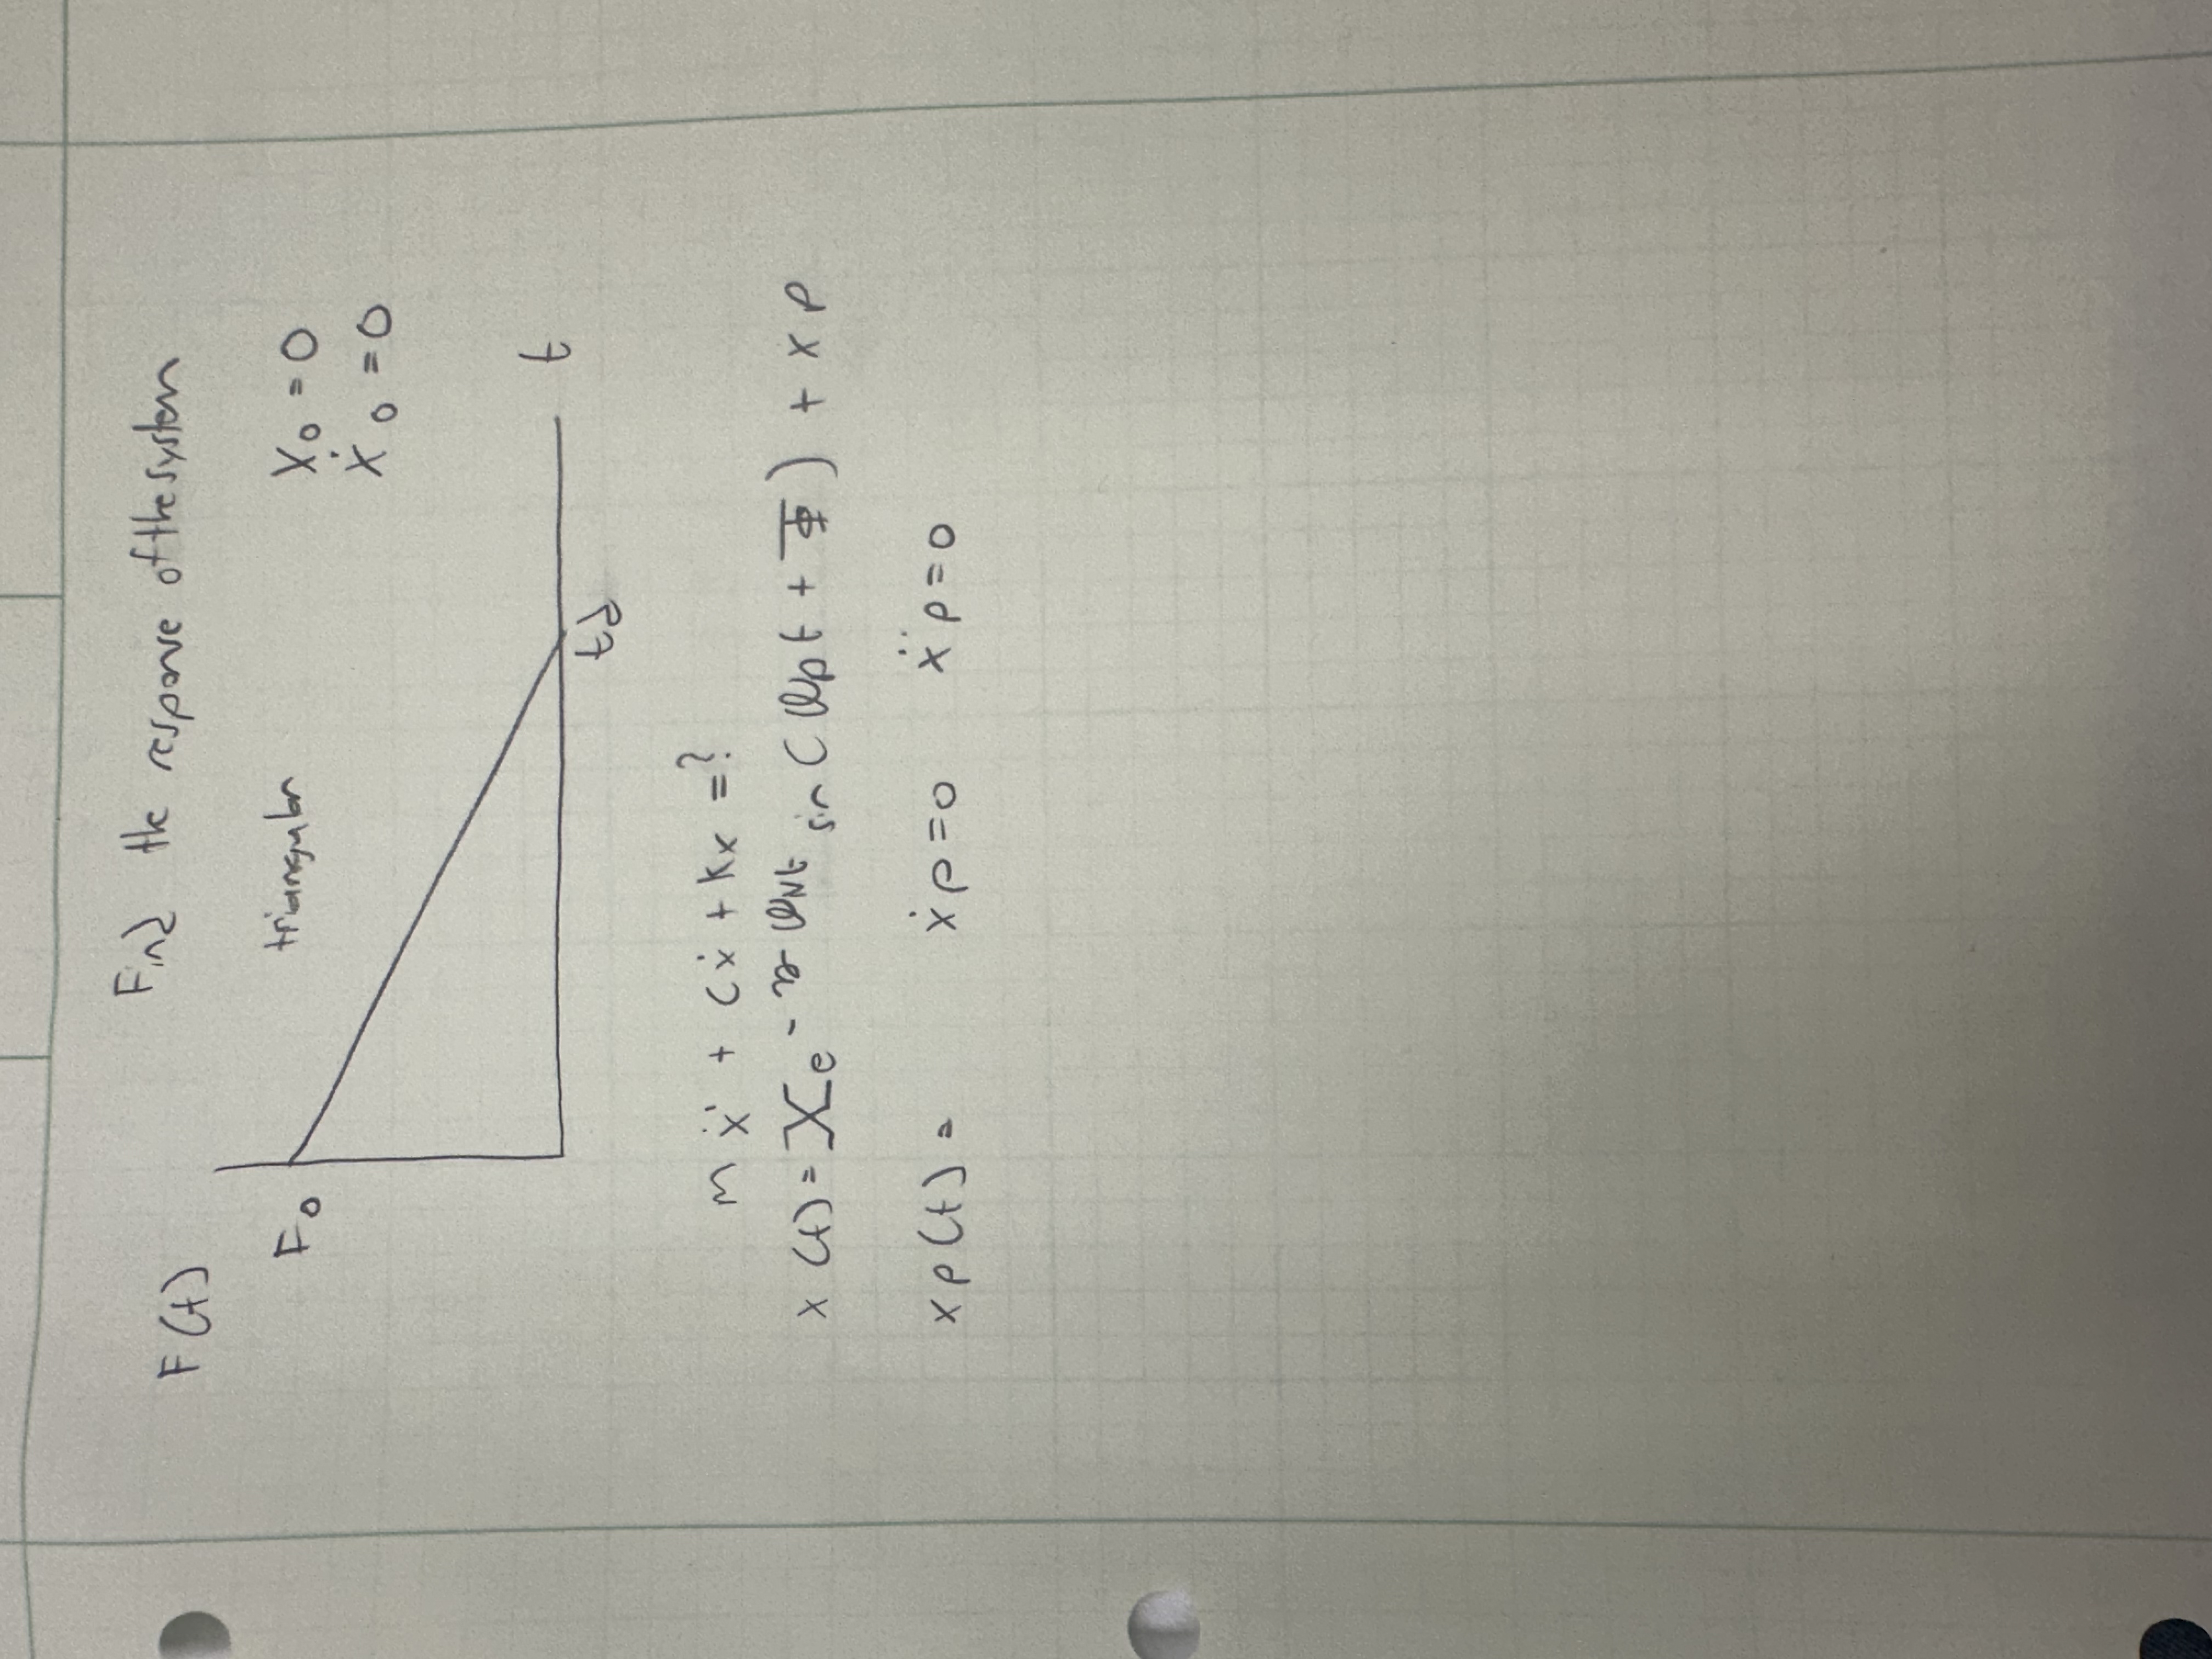 Find the response of the system
F(t)
triangular
F0
X0 = 0
ẋ0 = 0
t
td
mẍ + cẋ + kx = ?
x(t) = Xe^-ζωnt sin(ωDt + Φ) + xp
xp(t) =
ẋp = 0
ẍp = 0